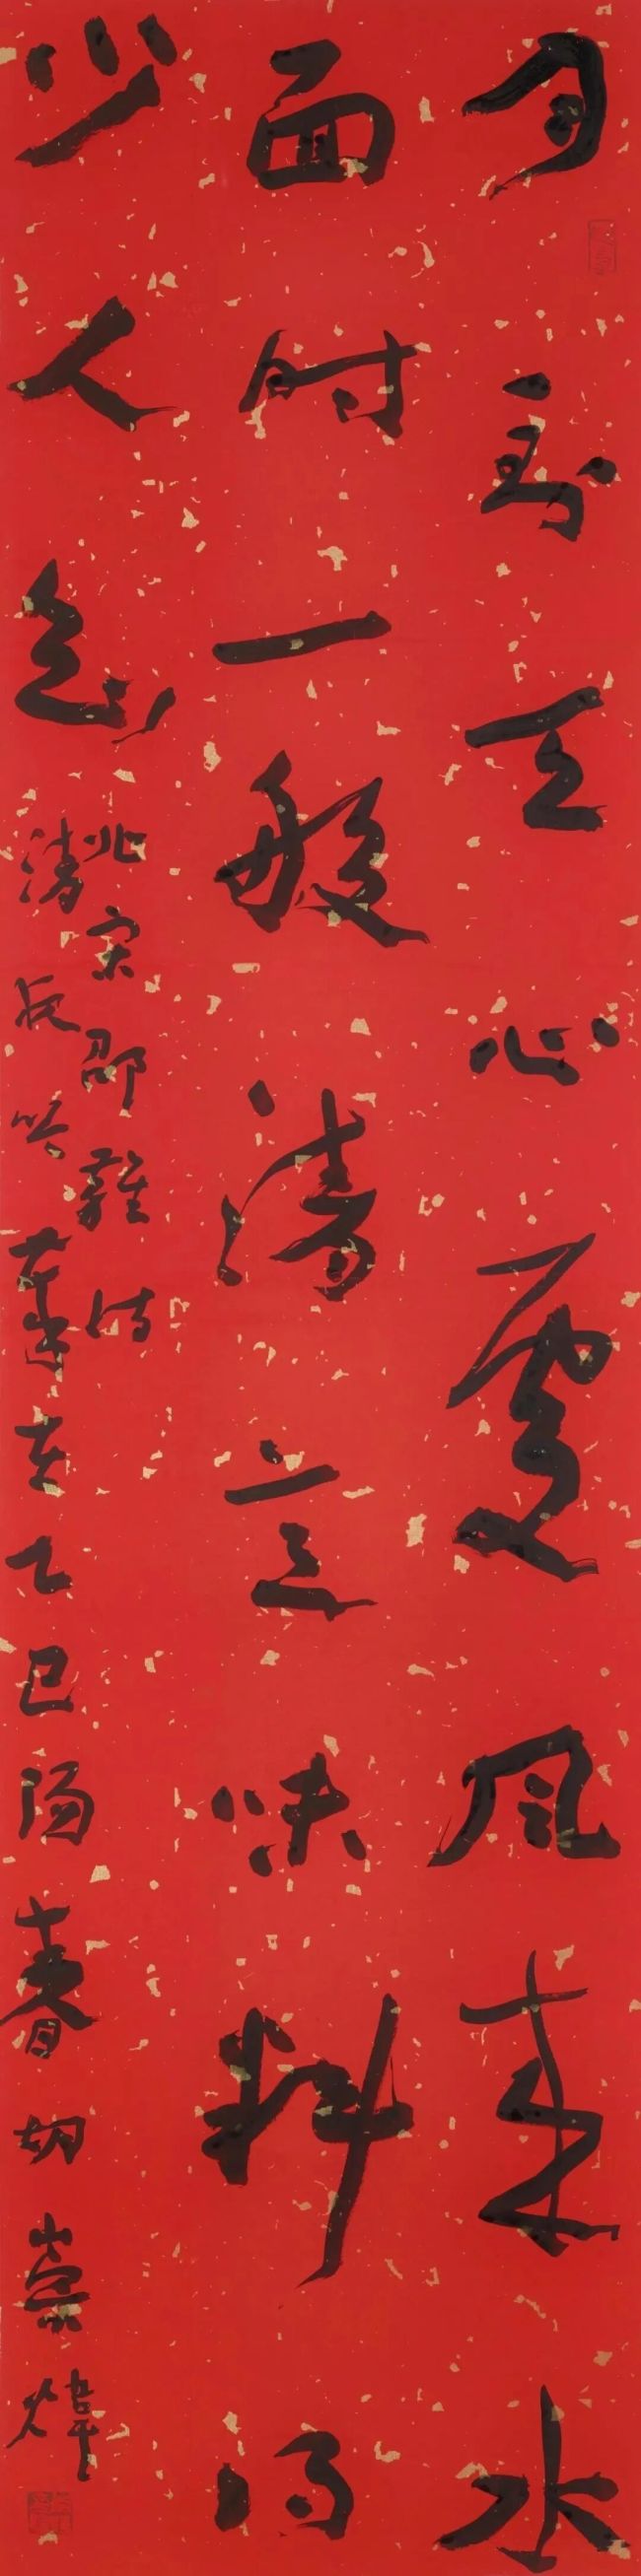 月到天心處風来水
面时一般清意味料得
少人知
北宋邵雍诗
清夜吟歲在乙巳阳春初崇煒